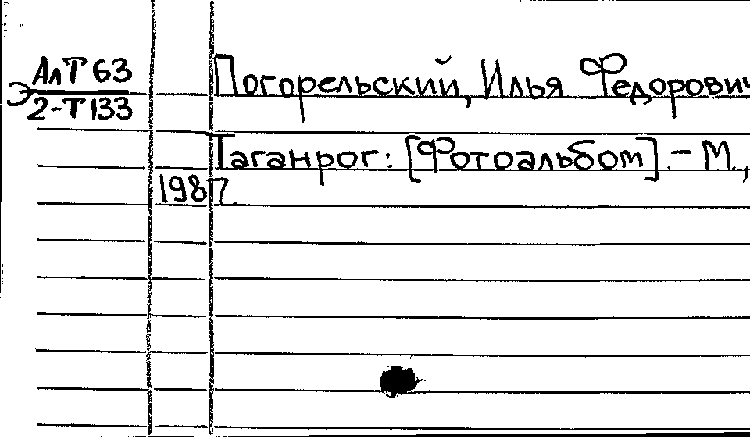 АлТ 63
Э 2-Т 133
Погорельский, Илья Федорович
Таганрог: [Фотоальбом]. – М.,
1987.